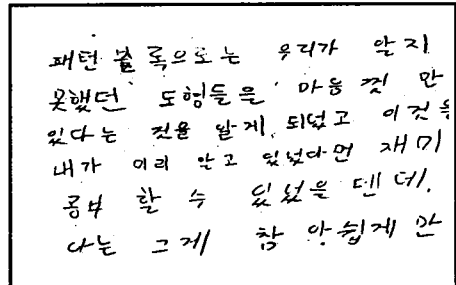 패턴 블록으로는 우리가 알지
못했던 도형들을 마음껏 만
있다는 것을 알게 되었고 이것을
내가 미리 알고 있었다면 재미
공부 할 수 있었을 텐데.
나는 그게 참 아쉽게 만